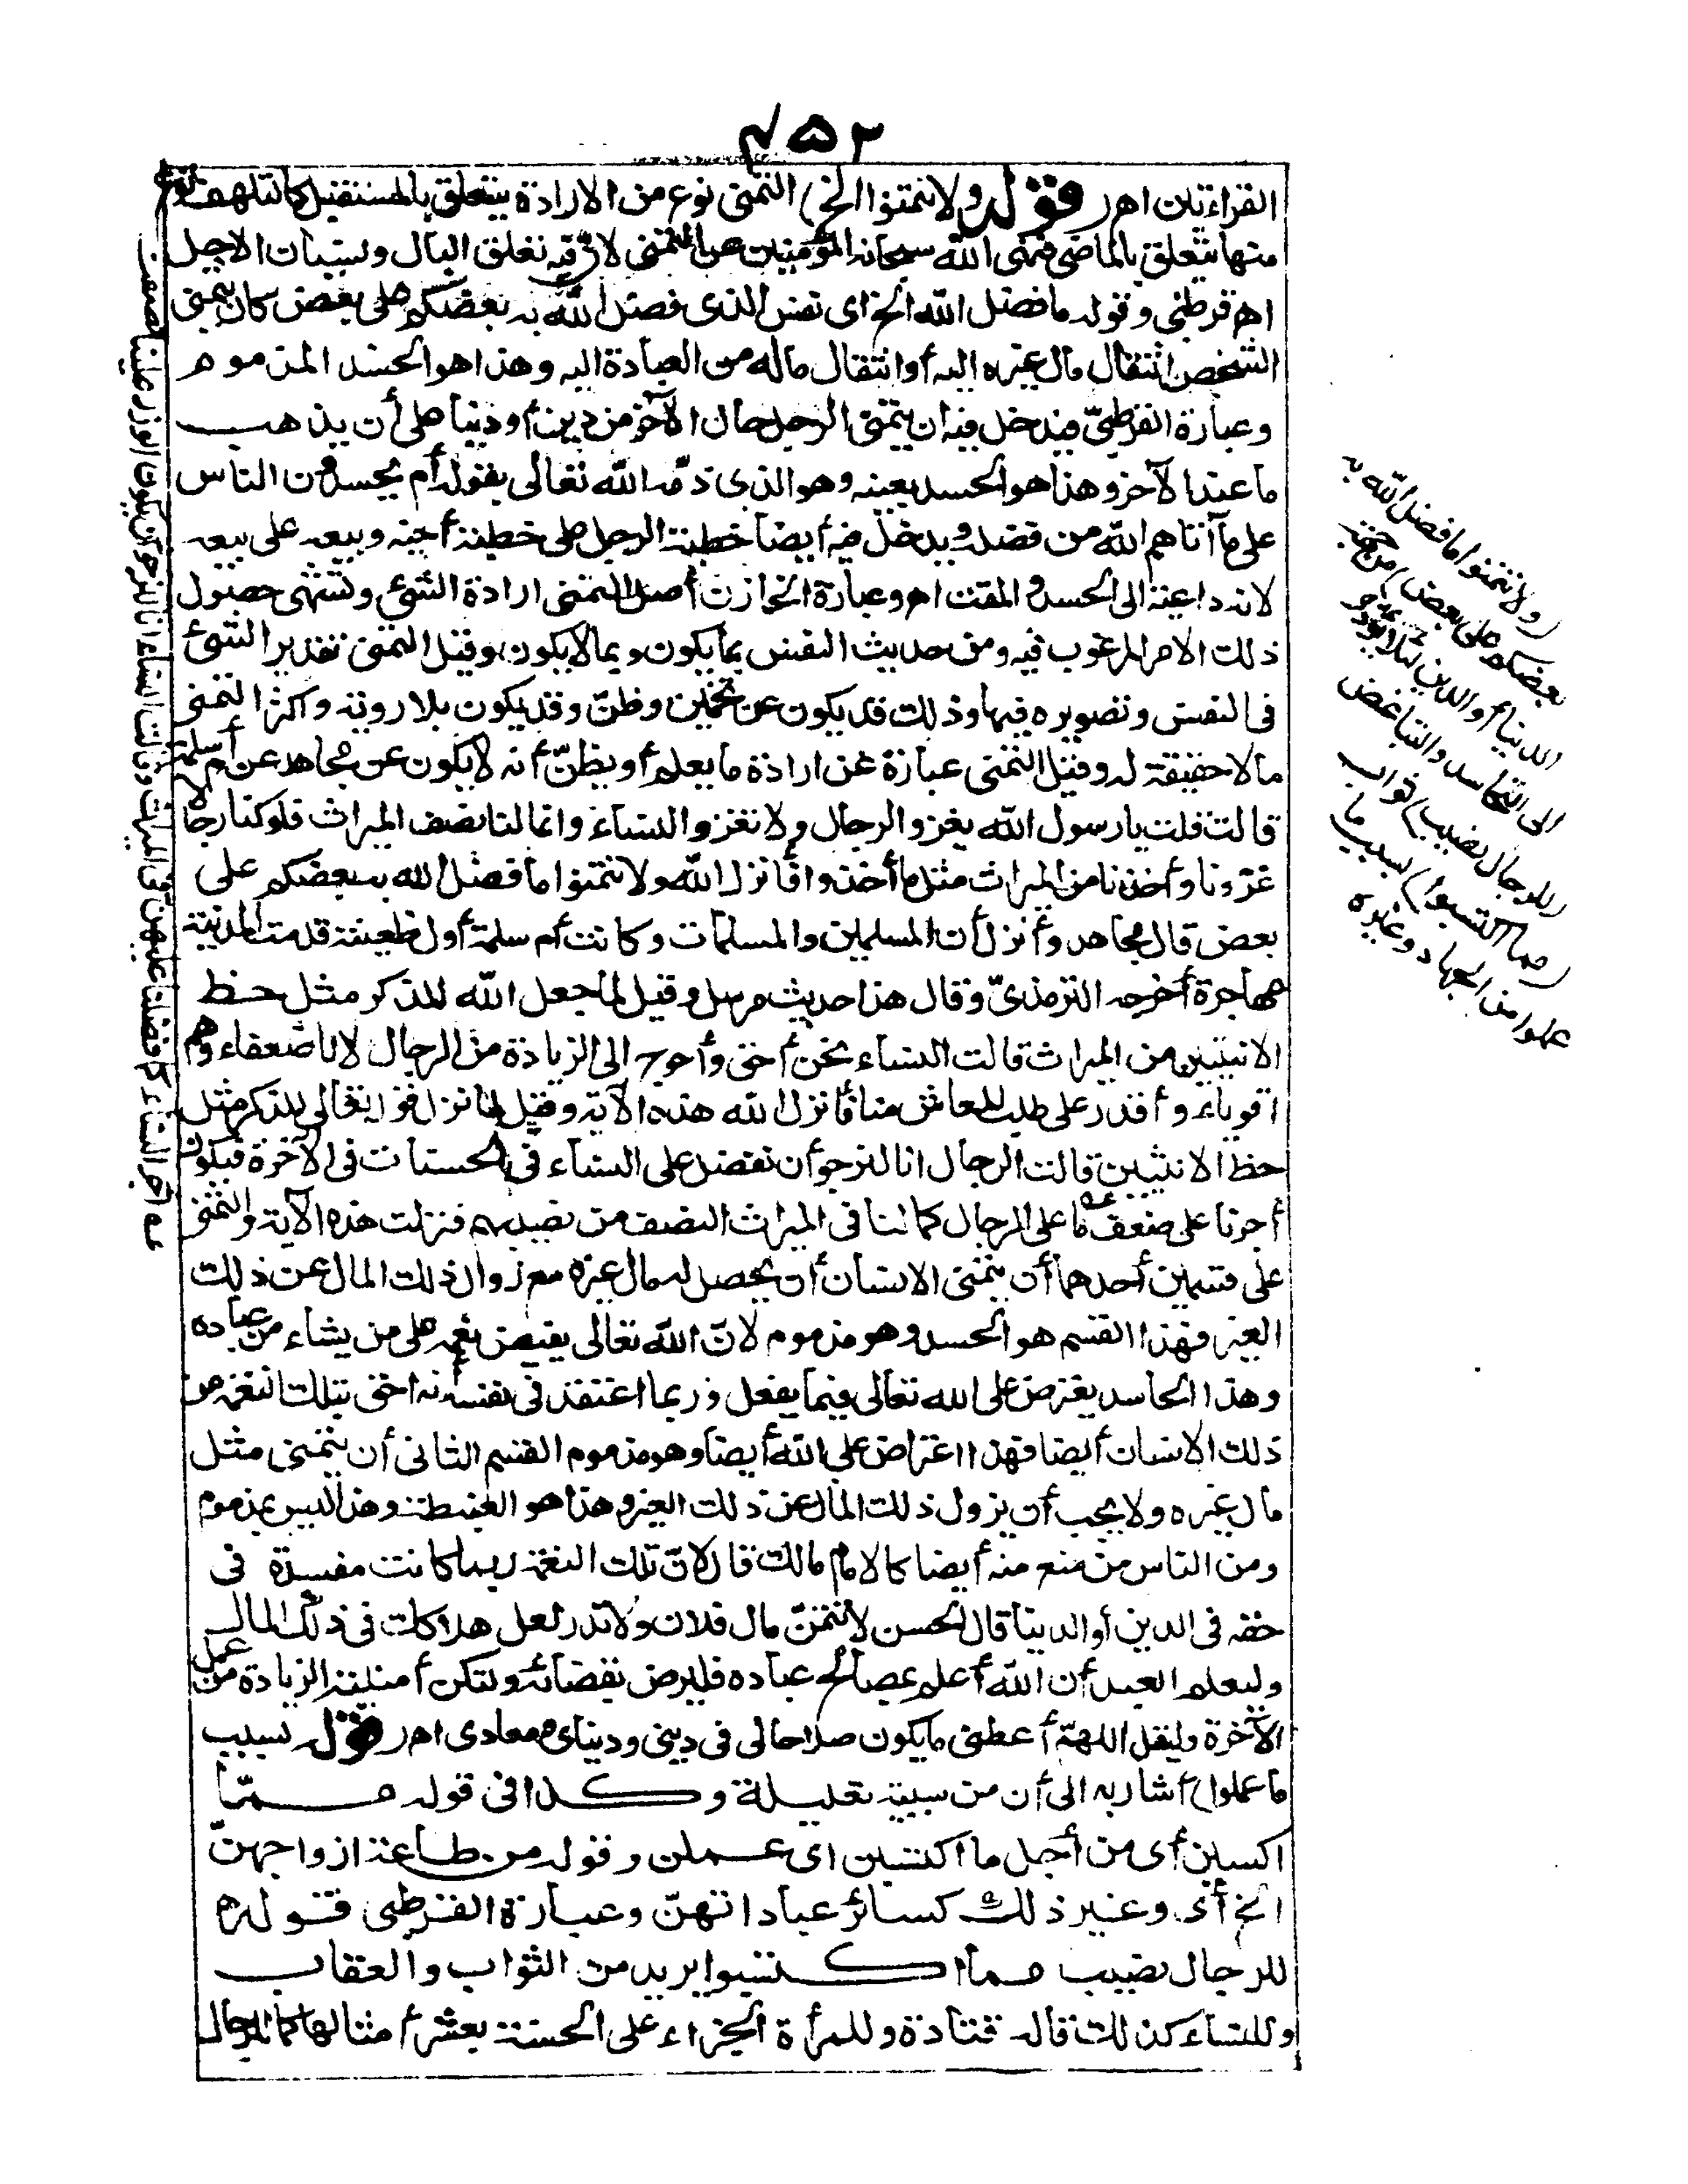 ٤٥٢
القراءتان اهـ (قوله ولا تتمنوا الخ) التمنى نوع من الارادة يتعلق بالمستقبل كالتلهف نوع
منها يتعلق بالماضى فنهى الله سبحانه المؤمنين عن التمنى لان فيه تعلق البال ونسيان الاجل
اهـ قرطبى وقوله ما فضل الله الخ اى نفس الذى فضل الله به بعضكم على بعض كان يتمنى
الشخص انتقال مال غيره اليه أو انتقال ماله من العبادة اليه وهذا هو الحسد المذموم
وعبارة القرطبىّ فيدخل فيه ان يتمنى الرجل حال الآخر من دين أو دنيا على أن يذهب
ما عند الآخر وهذا هو الحسد بعينه وهو الذى ذمّه الله تعالى بقوله أم يحسدون الناس
على ما آتاهم الله من فضله ويدخل فيه أيضا خطبة الرجل على خطبة أخيه وبيعه على بيعه
لانه داعية الى الحسد والمقت اهـ وعبارة الخازن أصل التمنى ارادة الشئ وتشهى حصول
ذلك الامر المرغوب فيه ومن حديث النفس بما يكون وبما لا يكون وقيل التمنى تقدير الشئ
فى النفس وتصويره فيها وذلك قد يكون عن تخمين وظنّ وقد يكون بلا روية واكثر التمنى
ما لا حقيقة له وقيل التمنى عبارة عن ارادة ما يعلم أو يظنّ أنه لا يكون عن مجاهد عن أم سلمة
قالت قلت يا رسول الله يغزو الرجال ولا تغزو النساء وانما لنا نصف الميراث فلو كنا رجالا
غزونا وأخذنا من الميراث مثل ما أخذوا فأنزل الله ولا تتمنوا ما فضل الله به بعضكم على
بعض قال مجاهد وأنزل أن المسلمين والمسلمات وكانت أم سلمة أول ظعينة قدمت المدينة
مهاجرة أخرجه الترمذىّ وقال هذا حديث مرسل وقيل لما جعل الله للذكر مثل حظ
الانثيين من الميراث قالت النساء نحن أحق وأحوج الى الزيادة من الرجال لانا ضعفاء وهم
اقوياء وأقدر على طلب المعاش منا فأنزل الله هذه الآية وقيل لما نزل قوله تعالى للذكر مثل
حظ الانثيين قالت الرجال انا لنرجو أن نفضل على النساء فى الحسنات فى الآخرة فيكون
أجرنا على ضعف ما على الرجال كما لنا فى الميراث النصف من نصيبهم فنزلت هذه الآية والتمنى
على قسمين أحدهما أن يتمنى الانسان أن يحصل له مال غيره مع زوال ذلك المال عن ذلك
الغير فهذا القسم هو الحسد وهو مذموم لانّ الله تعالى يفيض نعمه على من يشاء من عباده
وهذا الحاسد يعترض على الله تعالى فيما يفعل وربما اعتقد فى نفسه أنه احق بتلك النعم من
ذلك الانسان أيضا فهذا اعتراض على الله أيضا وهو مذموم القسم الثانى أن يتمنى مثل
مال غيره ولا يحب أن يزول ذلك المال عن ذلك الغير وهذا هو الغبطة وهذا ليس بمذموم
ومن الناس من منع منه أيضا كالامام مالك قال لانّ تلك النعمة ربما كانت مفسدة فى
حقه فى الدين أو الدنيا قال الحسن لا تتمنّ مال فلان ولا تدر لعل هلاكك فى ذلك المال
وليعلم العبد أن الله أعلم بمصالح عباده فليرض بقضائه ولتكن أمنيته الزيادة من عمل
الآخرة وليقل اللهمّ أعطنى ما يكون صلاحا لى فى دينى ودنياى ومعادى اهـ (قوله بسبب
ما عملوا) أشار به الى أن من سببية تعليلة وكذا فى قوله ممّا
اكتسبن أى من أجل ما اكتسبن اى عملن وقوله من طاعة ازواجهنّ
الخ أى وغير ذلك كسائر عباداتهنّ وعبارة القرطبى قوله
للرجال نصيب مما اكتسبوا يريد من الثواب والعقاب
وللنساء كذلك قاله قتادة وللمرأة الجزاء على الحسنة بعشر أمثالها كما للرجال
(ولا تتمنوا ما فضل الله به
بعضكم على بعض) من جهة
الدنيا أو الدين لئلا يؤدى
الى التحاسد والتباغض
(للرجال نصيب) ثواب
(مما اكتسبوا) بسبب ما
عملوا من الجهاد وغيره
عـه أجر النساء كما فضلنا عليهن فى الميراث وقالت النساء انا لنرجو أن يكون الوزر علينا نصف